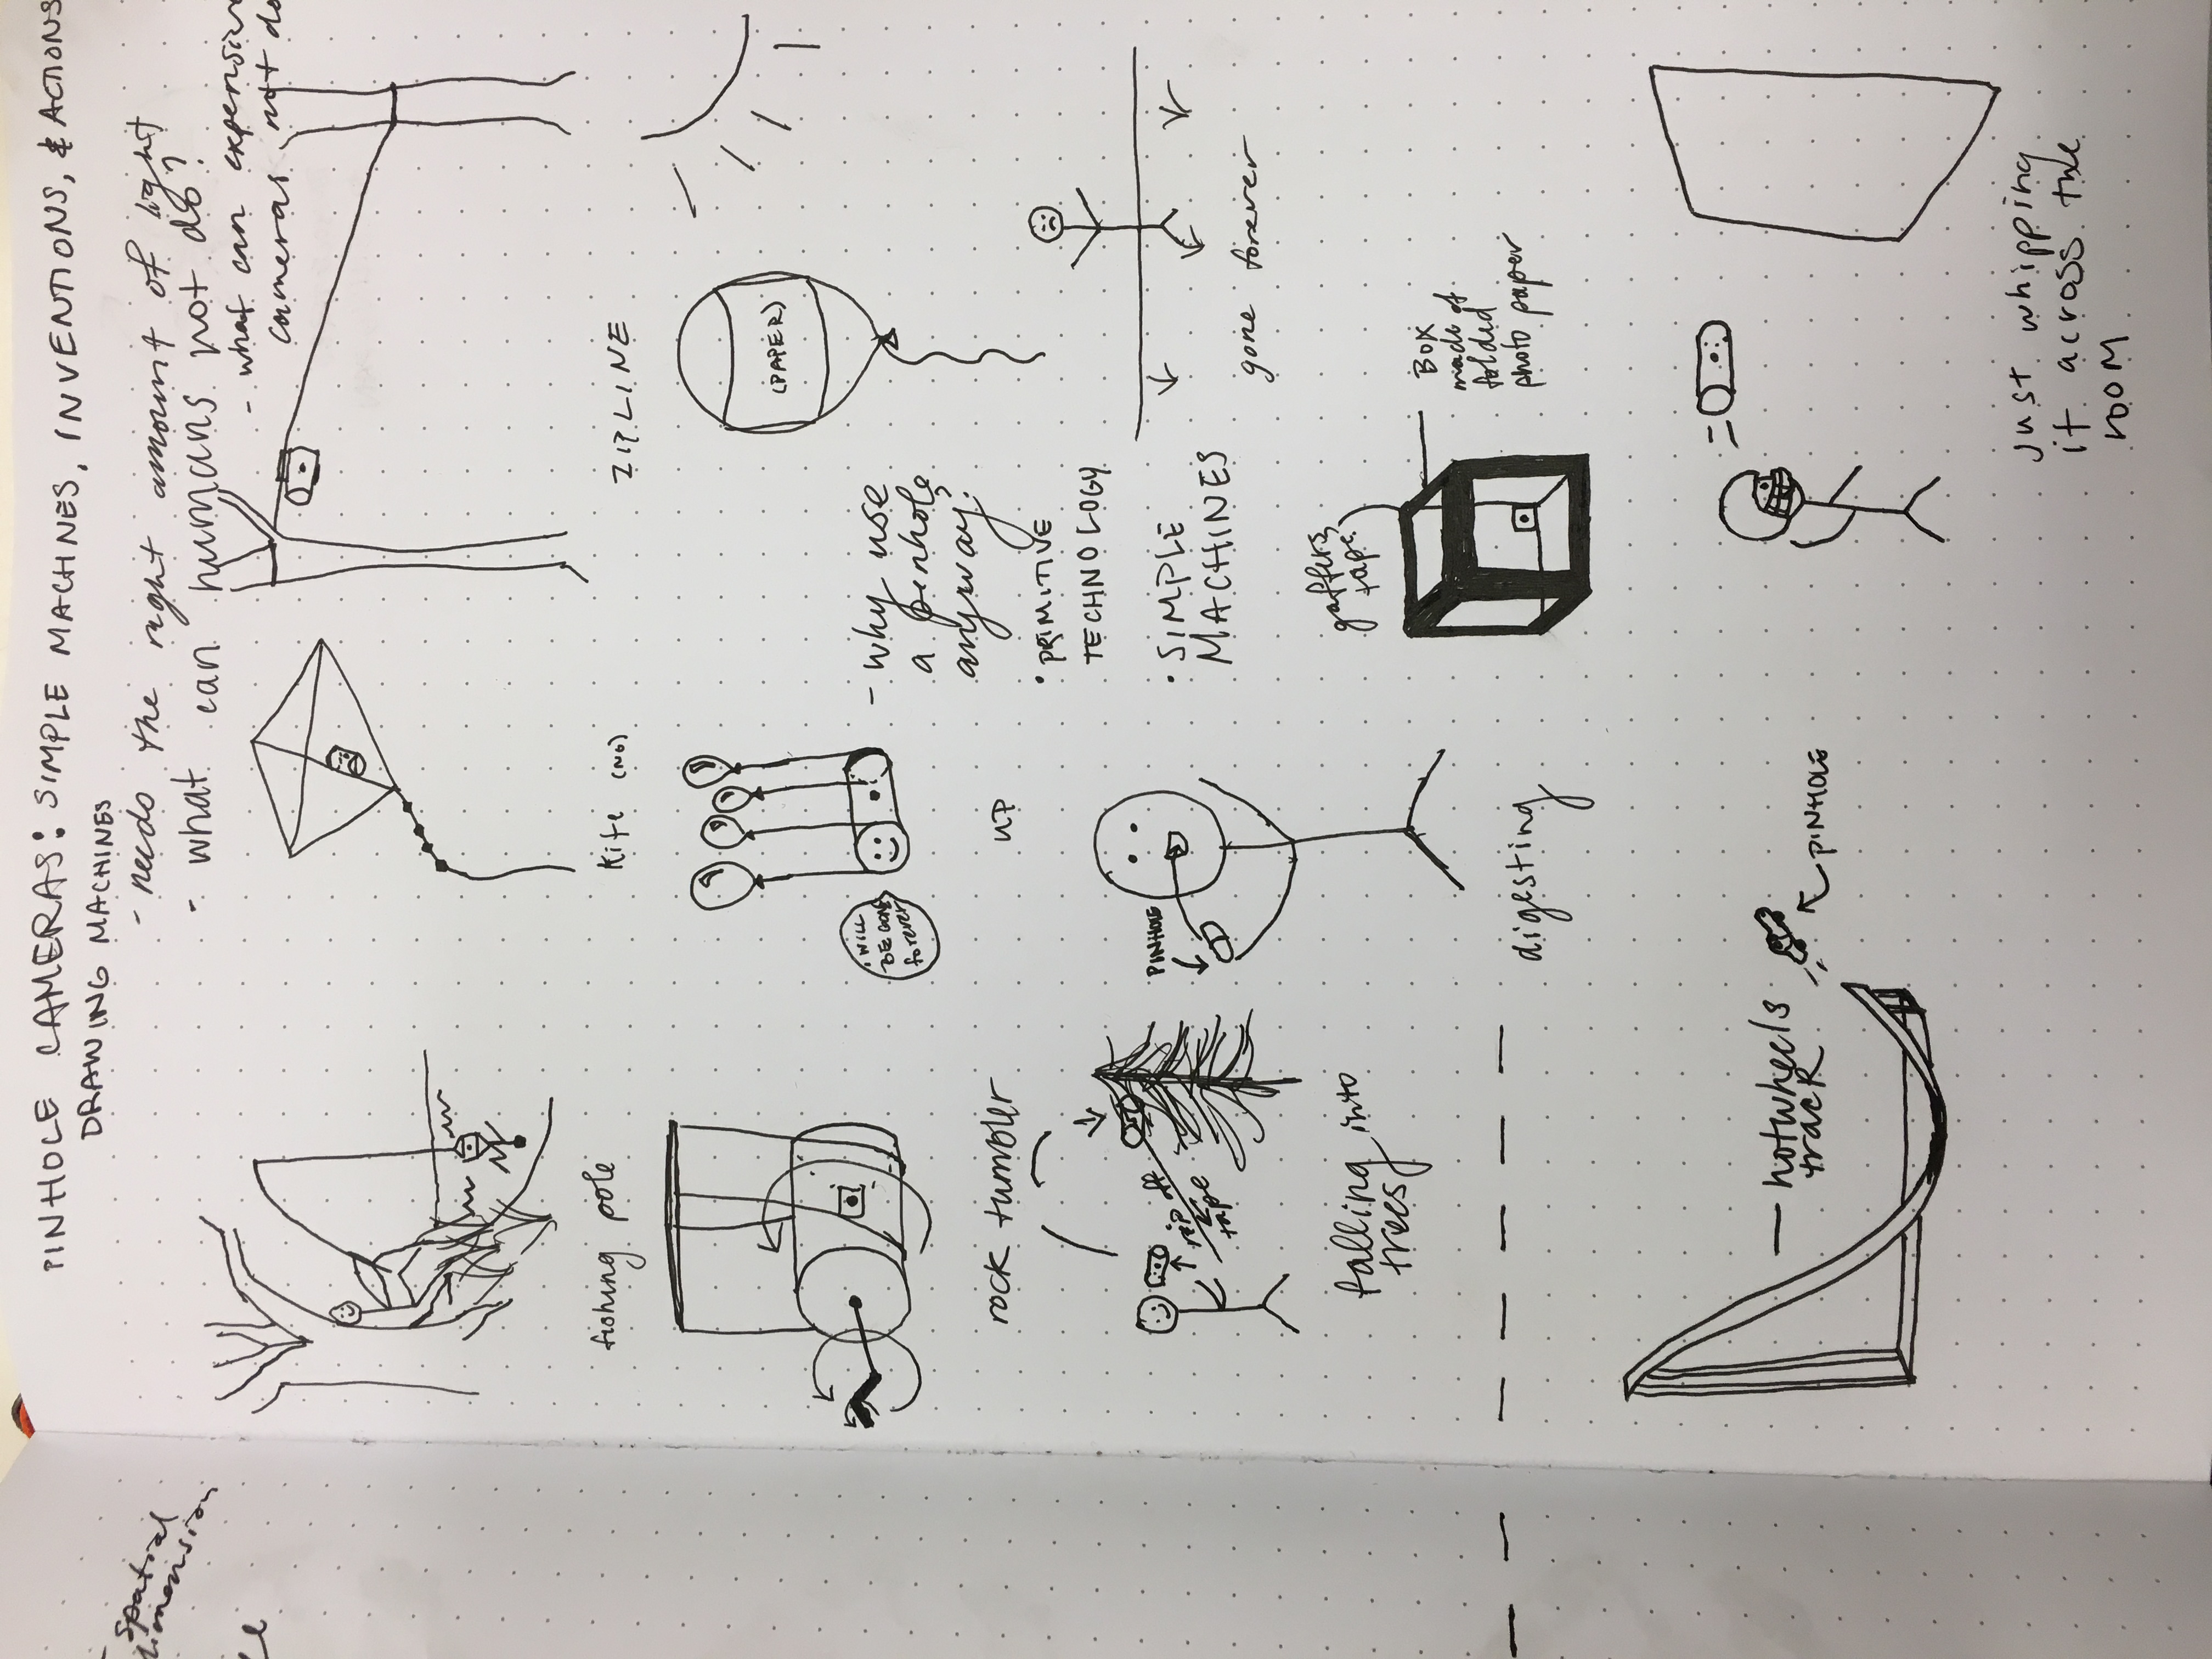 spatial
dimension
PINHOLE CAMERAS: SIMPLE MACHINES, INVENTIONS, & ACTIONS
DRAWING MACHINES
- needs the right amount of light
- what can humans not do?
- what can expensive
cameras not do
fishing pole
Kite (NO)
ZIPLINE
(PAPER)
I WILL
BE GONE
forever
- why use
a pinhole
anyway?
rock tumbler
UP
• PRIMITIVE
TECHNOLOGY
• SIMPLE
MACHINES
rip off
tape
PINHOLE
gone forever
falling into
trees
gaffers
tape
BOX
made of
folded
photo paper
digesting
hotwheels
track
PINHOLE
just whipping
it across the
room